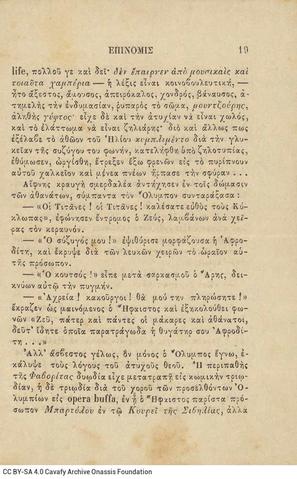 ΕΠΙΝΟΜΙΣ 19
life, πολλοῦ γε καὶ δεῖ· δὲν ἐπαιρνεν ἀπὸ μουσικαῖς καὶ
τοιαῦτα χαμπέρια — ἡ λέξις εἶναι κοινοβουλευτική, —
ἦτο ἄξεστος, ἄμουσος, ἀπειρόκαλος, χονδρός, βάναυσος, ἀ-
τημελὴς τὴν ἐνδυμασίαν, ῥυπαρὸς τὸ σῶμα, μουντζούρης,
ἀληθὴς γύφτος· εἶχε δὲ καὶ τὴν ἀτυχίαν νὰ εἶναι χωλός,
καὶ τὸ ἐλάττωμα νὰ εἶναι ζηλιάρης· διὸ καὶ ἄλλως πως
ἐξέλαβε τὸ ἆθῶον τοῦ Ἡλίου κομπλιμέντο διὰ τὴν γλυ-
κεῖαν τῆς συζύγου του φωνήν, κατελήφθη ὑπὸ ζηλοτυπίας,
ἐθύμωσεν, ὠργίσθη, ἔτρεξεν ἔξω φρενῶν εἰς τὸ πυρίπνουν
αὐτοῦ χαλκεῖον καὶ μένεα πνέων ἥρπασε τὴν σφύραν . . .
Αἴφνης κραυγὴ σμερδαλέα ἀντήχησεν ἐν τοῖς δώμασιν
τῶν ἀθανάτων, σύμπαντα τὸν Ὄλυμπον συνταράξασα:
— «Οἱ Τιτᾶνες! οἱ Τιτᾶνες! καλέσατε εὐθὺς τοὺς Κύ-
κλωπας», ἐφώνησεν ἔντρομος ὁ Ζεύς, λαμβάνων ἀνὰ χεῖ-
ρας τὸν κεραυνόν.
— «Ὁ σύζυγός μου!» ἐψιθύρισε μορφάζουσα ἡ Ἀφρο-
δίτη, καὶ ἔκρυψε διὰ τῶν λευκῶν χειρῶν τὸ ὡραῖον αὐ-
τῆς πρόσωπον.
— «Ὁ κουτσός!» εἶπε μετὰ σαρκασμοῦ ὁ Ἄρης, δει-
κνύων αὐτῷ τὴν πυγμήν.
— «Ἀχρεῖα! κακοῦργοι! θὰ μοῦ τὴν πληρώσητε!»
ἔκραζεν ὡς μαινόμενος ὁ Ἥφαιστος καὶ ἐξηκολούθει φω-
νῶν «Ζεῦ, πάτερ καὶ πάντες οἱ μάκαρες καὶ ἀθάνατοι,
δεῦτ' ἴδητε ὁποῖα παρατράγωδα ἡ θυγάτηρ σου Ἀφροδί-
τη . . .»
Ἀλλ' ἄσβεστος γέλως, ὃν μόνος ὁ Ὄλυμπος ἔγνω, ἐ-
κάλυψε τοὺς λόγους τοῦ ἀτυχοῦς θεοῦ. Ἡ περιπαθὴς
τῆς Φαβορίτας δυῳδία εἶχε μετατραπῆ εἰς κωμικὴν τριω-
δίαν, ἡ δὲ τριωδία διὰ τοῦ χοροῦ τῶν προσελθόντων Ὀ-
λυμπίων εἰς opera buffa, ἐν ᾗ ὁ Ἥφαιστος παρίστα πρό-
σωπον Μπαρτόλου ἐν τῷ Κουρεῖ τῆς Σιβηλίας, ἀλλὰ
CC BY-SA 4.0 Cavafy Archive Onassis Foundation